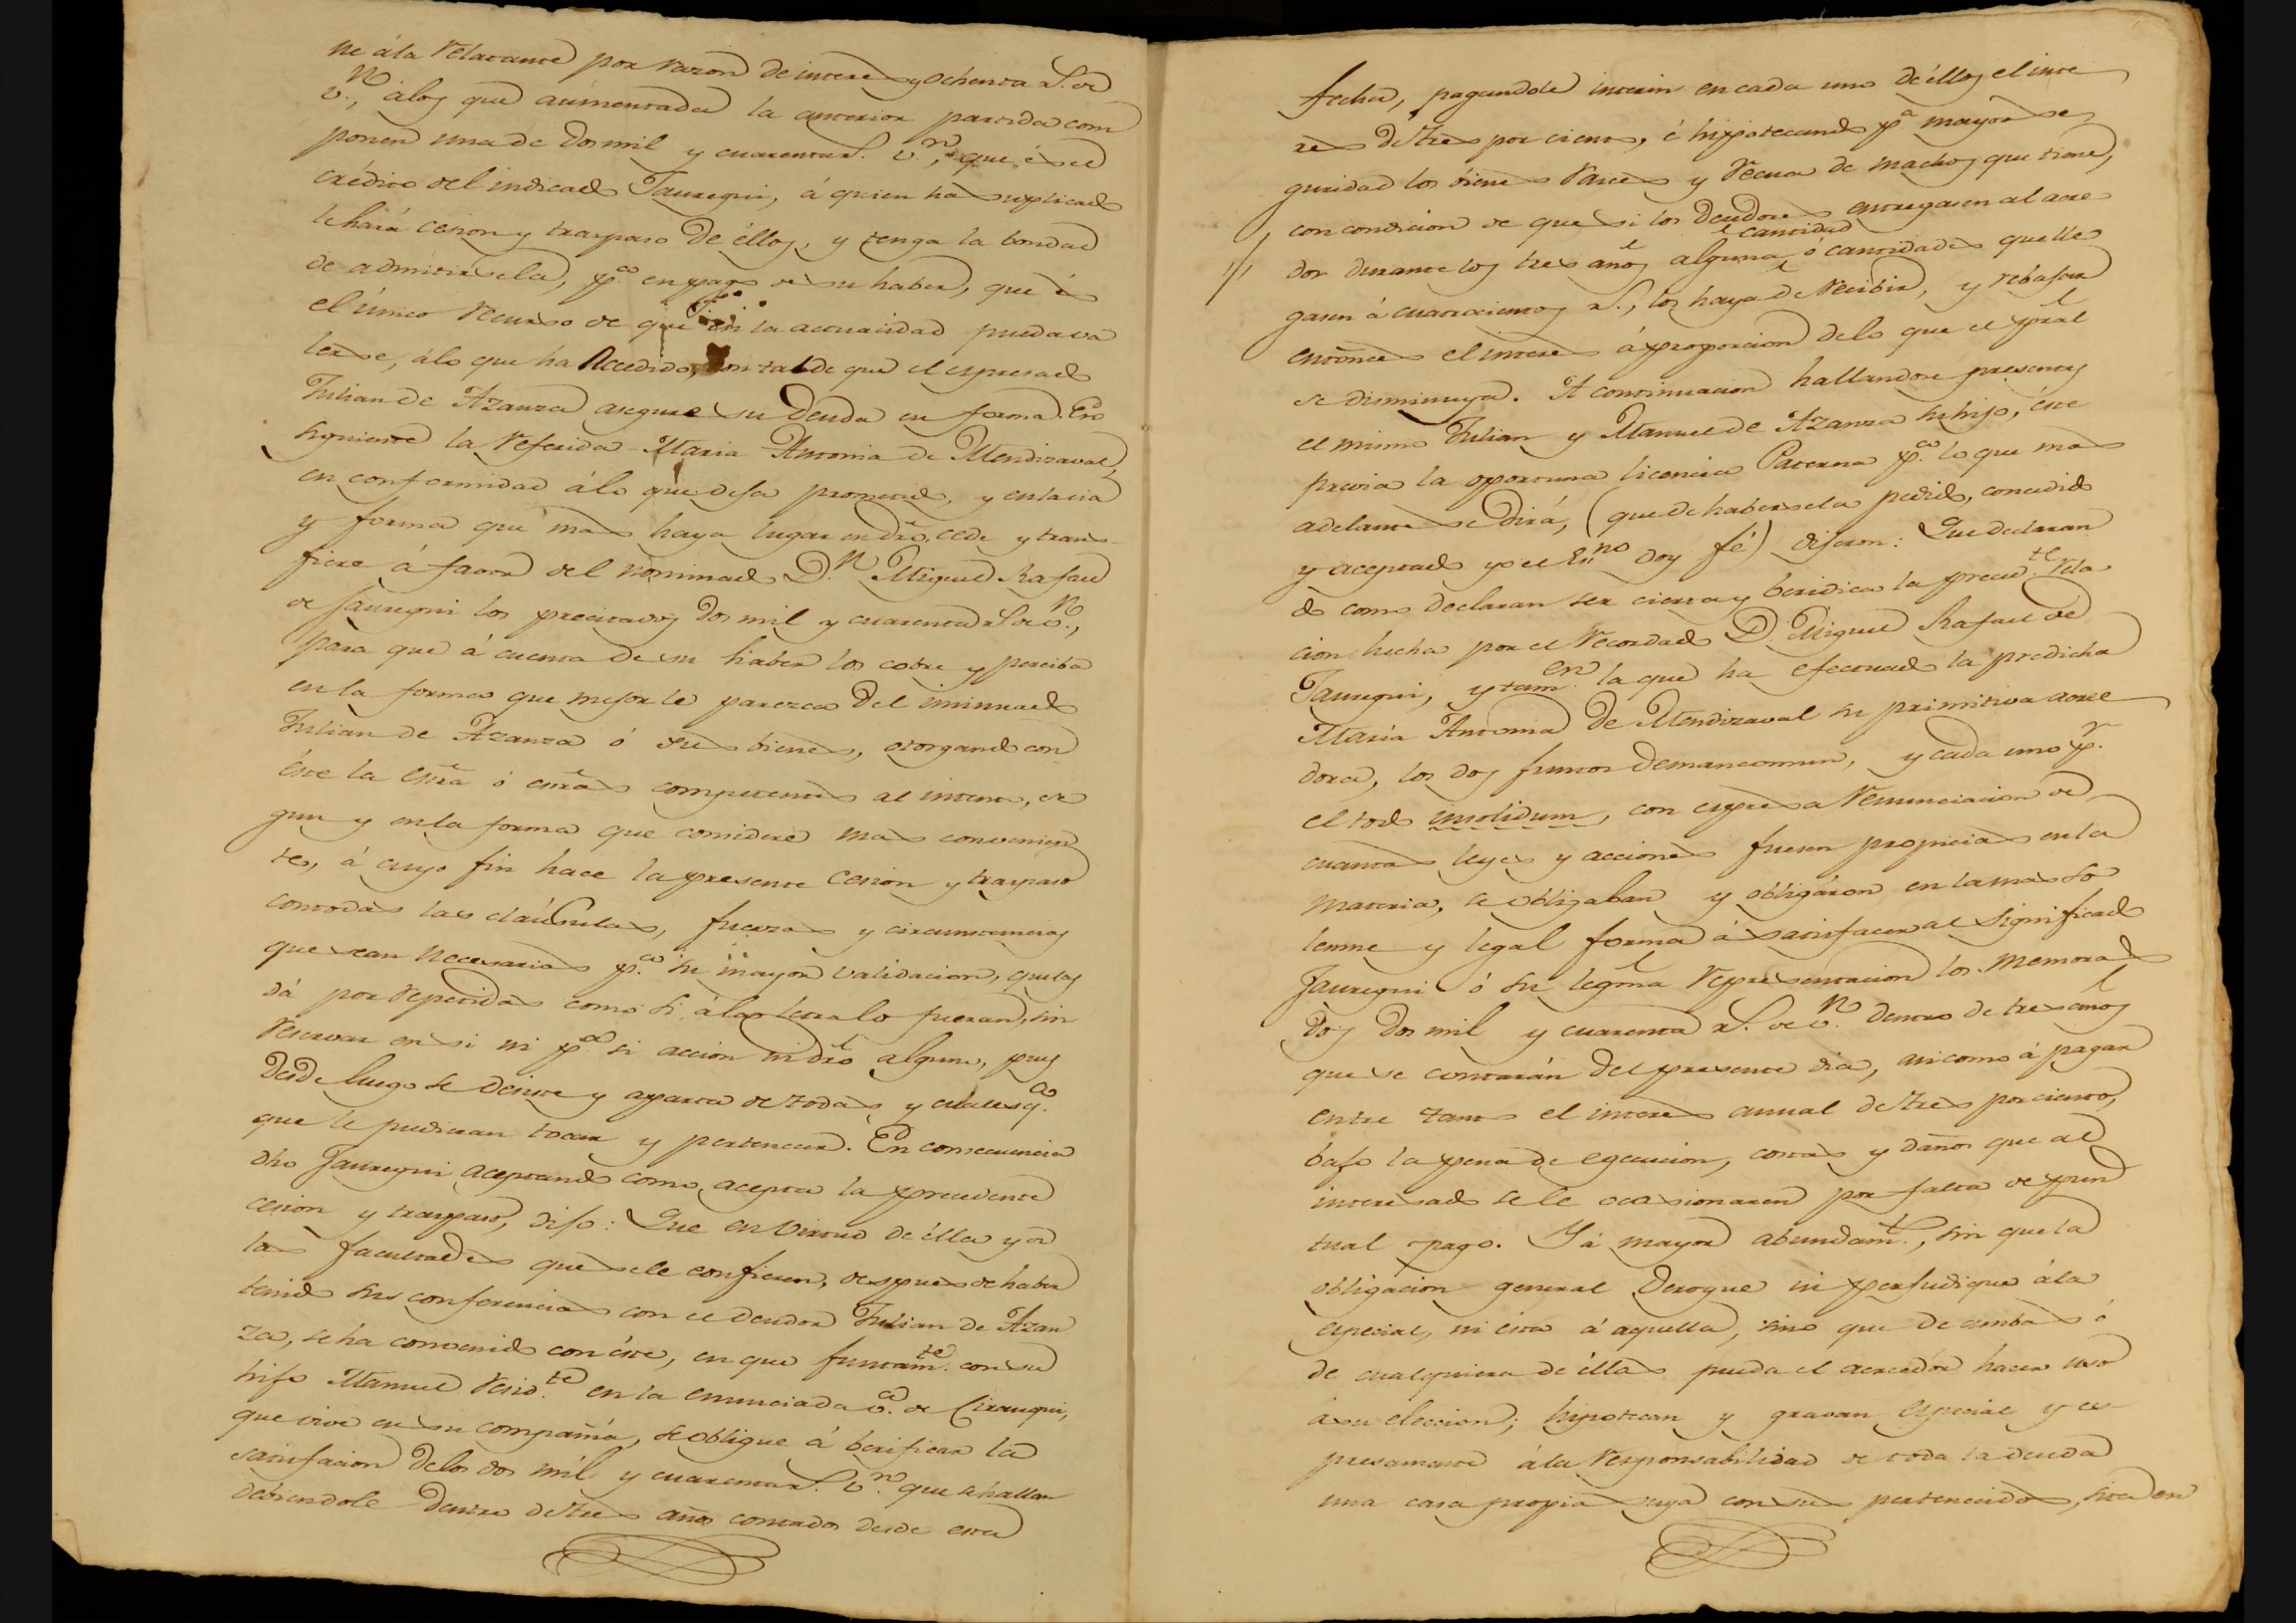 ne á la relatante por razon de interes y ochenta r.s de
v.n, álos que aumentada la anterior partida com
ponen una de Dos mil y cuarenta r.s v.n, que és el
crédito del indicado Jauregui, á quien ha suplicado
le hará cesion y traspaso De éllos, y tenga la bondad
de admitirsela, p.a en pago de su haber, que és
el único recurso de que en la actualidad pueda va
lerse, álo que ha Accedido, con tal de que el espresado
Julian de Azanza asegure su Deuda en forma. Pro
siguiente la referida Maria Antonia de Mendizaval,
en conformidad álo que deja prometido, y en la via
y forma que mas haya lugar en dro, cede y trans-
fiere á favor del nominado D.n Miguel Rafael
de Jauregui los precitados Dos mil y cuarenta r.s de v.n,
para que á cuenta de su haber los cobre y perciba
en la forma que mejor le parezca Del insinuado
Julian de Azanza ó sus bienes, otorgando con
éste la esc̃ra ó esc̃ras competentes al intento, se
gun y en la forma que considere mas convenien
te, á cuyo fin hace la presente cesion y traspaso
con todas las cláusulas, fuerzas y circunstancias
que sean necesarias p.a su mayor validacion, que las
dá por repetidas como si á la letra lo fueran, sin
reservar en si ni p.a si accion ni dro alguno, pues
Desde luego se Desiste y aparta de todas y cualesq.a
que le pudieran tocar y pertenecer. En consecuencia
dho Jauregui aceptando como acepta la precedente
cesion y traspaso, dijo: Que en virtud de élla y de
las facultades que se le confieren, despues de haber
tenido sus conferencias con el deudor Julian de Azan
za, se ha convenido con éste, en que juntam.te con su
hijo Manuel resid.te en la enunciada v.a de Cirauqui,
que vive en su compañia, se obligue á berificar la
satisfacion De los dos mil y cuarenta r.s v.n que se hallan
debiendole Dentro de tres años contados desde esta
fecha, pagandole interin en cada uno de éllos el inte
res de tres por ciento, é hipotecando p.a mayor se
guridad los bienes raices y recua de machos que tiene,
con condicion de que si los Deudores entregasen al acre
dor durante los tres años alguna cantidad ó cantidades que lle
gasen á cuatrocientos r.s, los haya de recibir, y rebajar
entónces el interes á proporcion delo que el pral
se disminuya. A continuacion hallandose presentes
el mismo Julian y Manuel de Azanza su hijo, éste
previa la oportuna licencia Paterna p.a lo que mas
adelante se Dirá, (que de habersela pedido, concedido
y aceptado yo el Es.no doy fé) dijeron: Que declaran
do como declaran ser cierta y beridica la preced.te rela
cion hecha por el recordado D. Miguel Rafael de
Jauregui, y tam.en la que ha efectuado la predicha
Maria Antonia De Mendizaval su primitiva acree
dora, los dos juntos Demancomun, y cada uno p.r
el todo insolidum, con espresa renunciacion de
cuantas leyes y acciones fueren propicias en la
materia, se obligaban y obligáron en la mas so
lemne y legal forma á satisfacer al significado
Jauregui ó su legma representacion los memora
dos Dos mil y cuarenta r.s de v.n dentro de tres años
que se contarán Del presente dia, asi como á pagar
entre tanto el interes annual de tres por ciento,
bajo la pena de egecucion, costas y daños que al
interesado se le ocasionaren por falta de pun
tual pago. Y á mayor abundam.to, sin que la
obligacion general Derogue ni perjudique á la
especial, ni esta á aquella, sino que De ambas ó
de cualquiera de éllas pueda el acreedor hacer uso
á su eleccion; hipotecan y gravan especial y es-
presamente á la responsabilidad de toda la deuda
una casa propia suya con sus pertenecidos, sita en